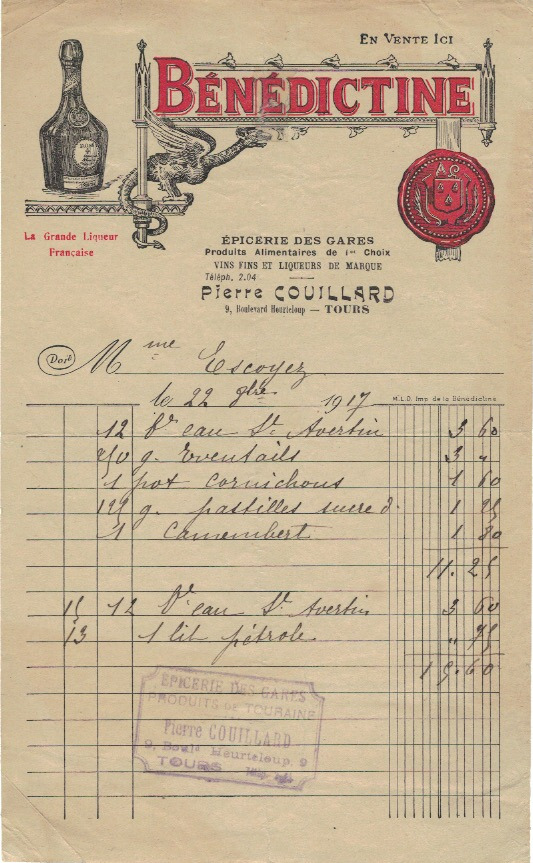 EN VENTE ICI
BÉNÉDICTINE
La Grande Liqueur
Française
ÉPICERIE DES GARES
Produits Alimentaires de 1er Choix
VINS FINS ET LIQUEURS DE MARQUE
Téléph. 2.04
Pierre COUILLARD
9, Boulevard Heurteloup — TOURS
Doit Mme Escoyez
le 22 9bre 1917
M.L.D. Imp. de la Bénédictine
12 Bes eau St Avertin 3 60
250 g. Eventails 3 "
1 pot cornichons 1 60
125 g. pastilles sucre d. 1 25
1 Camembert 1 80
11.25
15 12 Bes eau St Avertin 3 60
13 1 lit pétrole " 75
15.60
ÉPICERIE DES GARES
PRODUITS DE TOURAINE
Pierre COUILLARD
9, Bould Heurteloup, 9
TOURS